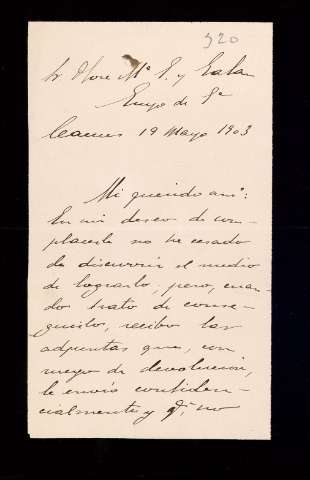 320
Sr Dn José Mª G. y Galan
Guijo de Gª
Caceres 19 Mayo 1903
Mi querido amº:
En mi deseo de com-
placerle no he cesado
de discurrir el medio
de lograrlo; pero, cuan-
do trato de conse-
guirlo, recibo las
adjuntas que, con
ruego de devolucion,
le envio confiden-
cialmente y qe, no